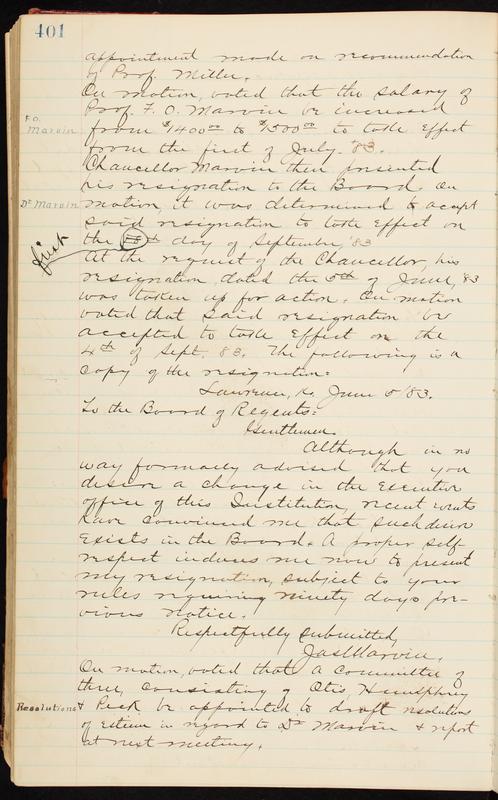 401
appointment made on recommendation
of Prof. Miller.
On motion, voted that the salary of
Prof. F. O. Marvin be increased
F.O.
Marvin
from $1400 00 to $1500 00 to take effect
from the first of July. '83.
Chancellor Marvin then presented
his resignation to the Board. On
Dr Marvin
motion, it was determined to accept
said resignation to take effect on
the day of September, '83
first
At the request of the Chancellor, his
resignation dated the 5th of June, '83
was taken up for action. On motion
voted that said resignation be
accepted to take effect on the
4th of Sept. 83. The following is a
copy of the resignation:
Lawrence, Ks June 5/83.
To the Board of Regents:
Gentlemen.
Although in no
way formally advised that you
desire a change in the Executive
office of this Institution, recent events
have convinced me that such desire
exists in the Board. A proper self-
respect induces me now to present
my resignation, subject to your
rules requiring ninety days pre-
vious notice.
Respectfully submitted,
Jas Marvin.
On motion, voted that a Committee of
three, consisting of Otis, Humphrey
Resolutions
& Peck be appointed to draft resolutions
of esteem in regard to Dr Marvin & report
at next meeting.